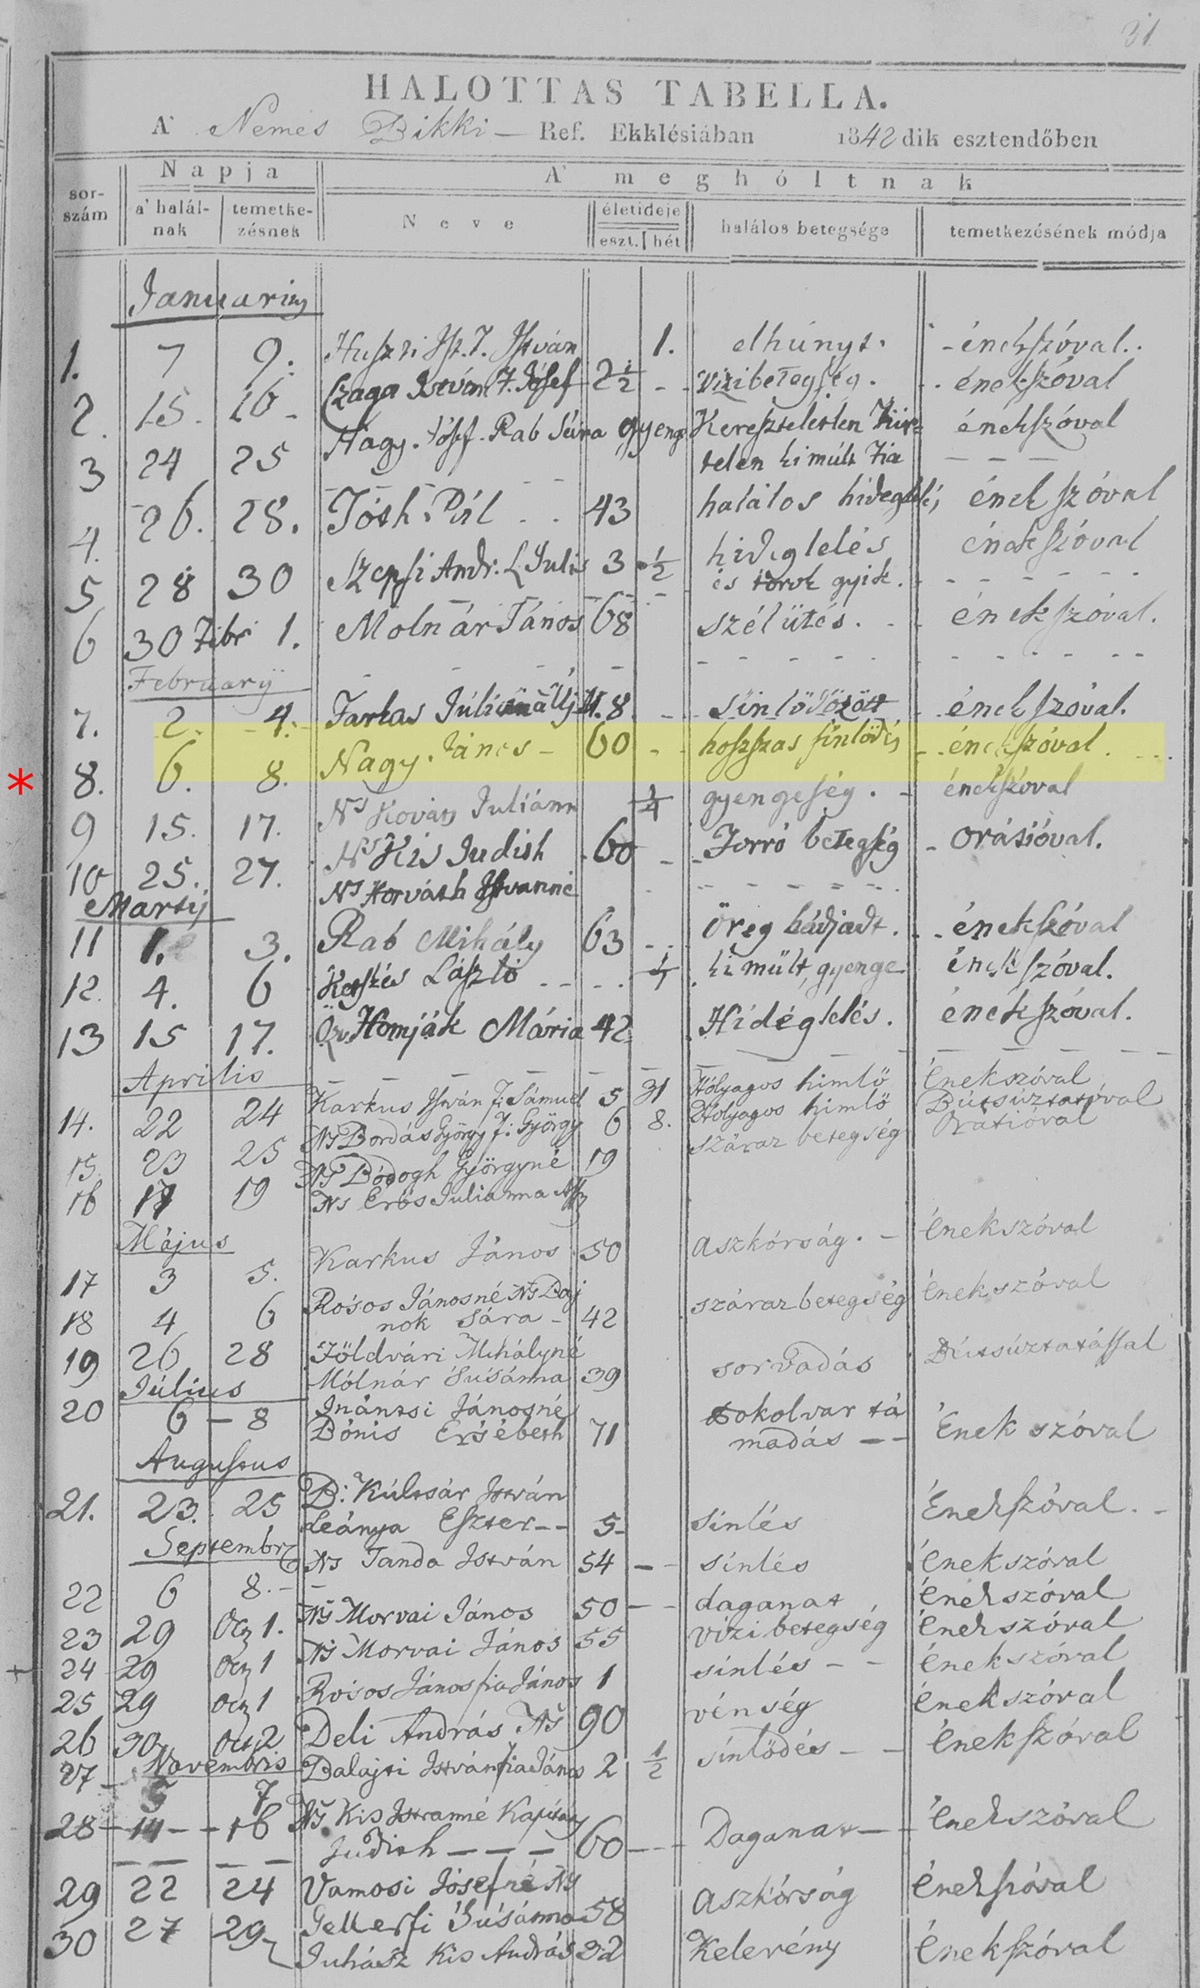 31
HALOTTAS TABELLA.
A' Nemes Bikki — Ref. Ekklésiában 1842 dik esztendőben
sor-szám Napja A' meghóltnak
a' halál-nak temetke-zésnek Neve életideje eszt. hét halálos betegsége temetkezésének módja
Januarius
1. 7 9. Huszti Ist. f. István 1. elhúnyt. - énekszóval..
2. 15. 16 - Czaga István f. Jósef 2 1/2 - - vizibetegség. . . énekszóval
3 24 25 Nagy. Jósf. Rab Sára gyeng Kereszteletlen énekszóval
telen ki múlt Fia - - - -
4. 26. 28. Tóth Pál . . 43 halálos hideglelés énekszóval
5 28 30 Szepsi Andr. L Julis 3 1/2 hideglelés énekszóval
és torok gyik. - - - - - -
6 30 Febr 1. Molnár János 68 szélütés. - - énekszóval.
Februarÿ
7. 2. 4. Farkas 8 - - énekszóval.
8. 6. 8. Nagy. János - 60 - - hoszszas sinlödés - - énekszóval . . . .
9 15. 17. Ns Kováts Juliánn 1/4 gyengeség. - énekszóval
10 25. 27. Ns Kis Judith 60 - - Forró betegség - orátióval.
Ns Horváth Istvánné
Martÿ
11 1. 3. Rab Mihály 63 - - öreg . . . énekszóval
12. 4. 6 László - - - . . ki múlt, gyenge énekszóval.
13 15 17. Öz. Homják Mária 42 Hidéglelés. énekszóval.
Aprilis
14. 22 24 Karkus István f. Sámuel 5 31 Hólyagos himlő Énekszóval
15. 23 25 Ns Bordás György f: György 6 8. Hólyagos himlő Bútsúztatóval
16 17 19 Ns Bódogh Györgyné 19 száraz betegség Orátióval
Ns Erős Julianna
Május
17 3 5. Karkus János 50 aszkórság. - Énekszóval
18 4 6 Rósos Jánosné Ns Baj
nok Sára - 42 száraz betegség Énekszóval
19 26 28 Földvári Mihályné
Mólnár Súsánna 39 sorvadás Bútsúztatással
Július
20 6 - 8 Inántsi Jánosné
Bónis Ersébeth 71 tokolvar tá
madás - - Ének szóval
Augustus
21. 23. 25 B: Kúltsár István
Leánya Eszter - - 5 - sinlés Énekszóval. -
Septembr
22 6 8. - Ns Tanda István 54 - - sinlés Énekszóval
23 29 Oct 1. Ns Morvai János 50 - - daganat Énekszóval
24 29 Oct 1 Ns Morvai János 55 vízi betegség Énekszóval
25 29 Oct 1 Rósos János fia János 1 sinlés - - Énekszóval
26 30 Oct 2 Deli András Ns 90 vénség Énekszóval
Novembris
27 5 7 Balajti István fia János 2 1/2 sinlödés - - Énekszóval
28 - 14 - - 16 Ns Kis Istvanné Kapitáy
Judith - - - - 60 - - - Daganat - - Énekszóval
29 22 24 Vamosi Jósefné Ns
Gellerfi Súsánna 58 aszkórság Énekszóval
30 27 29 Juhász Kis András 32 Kelevény Énekszóval